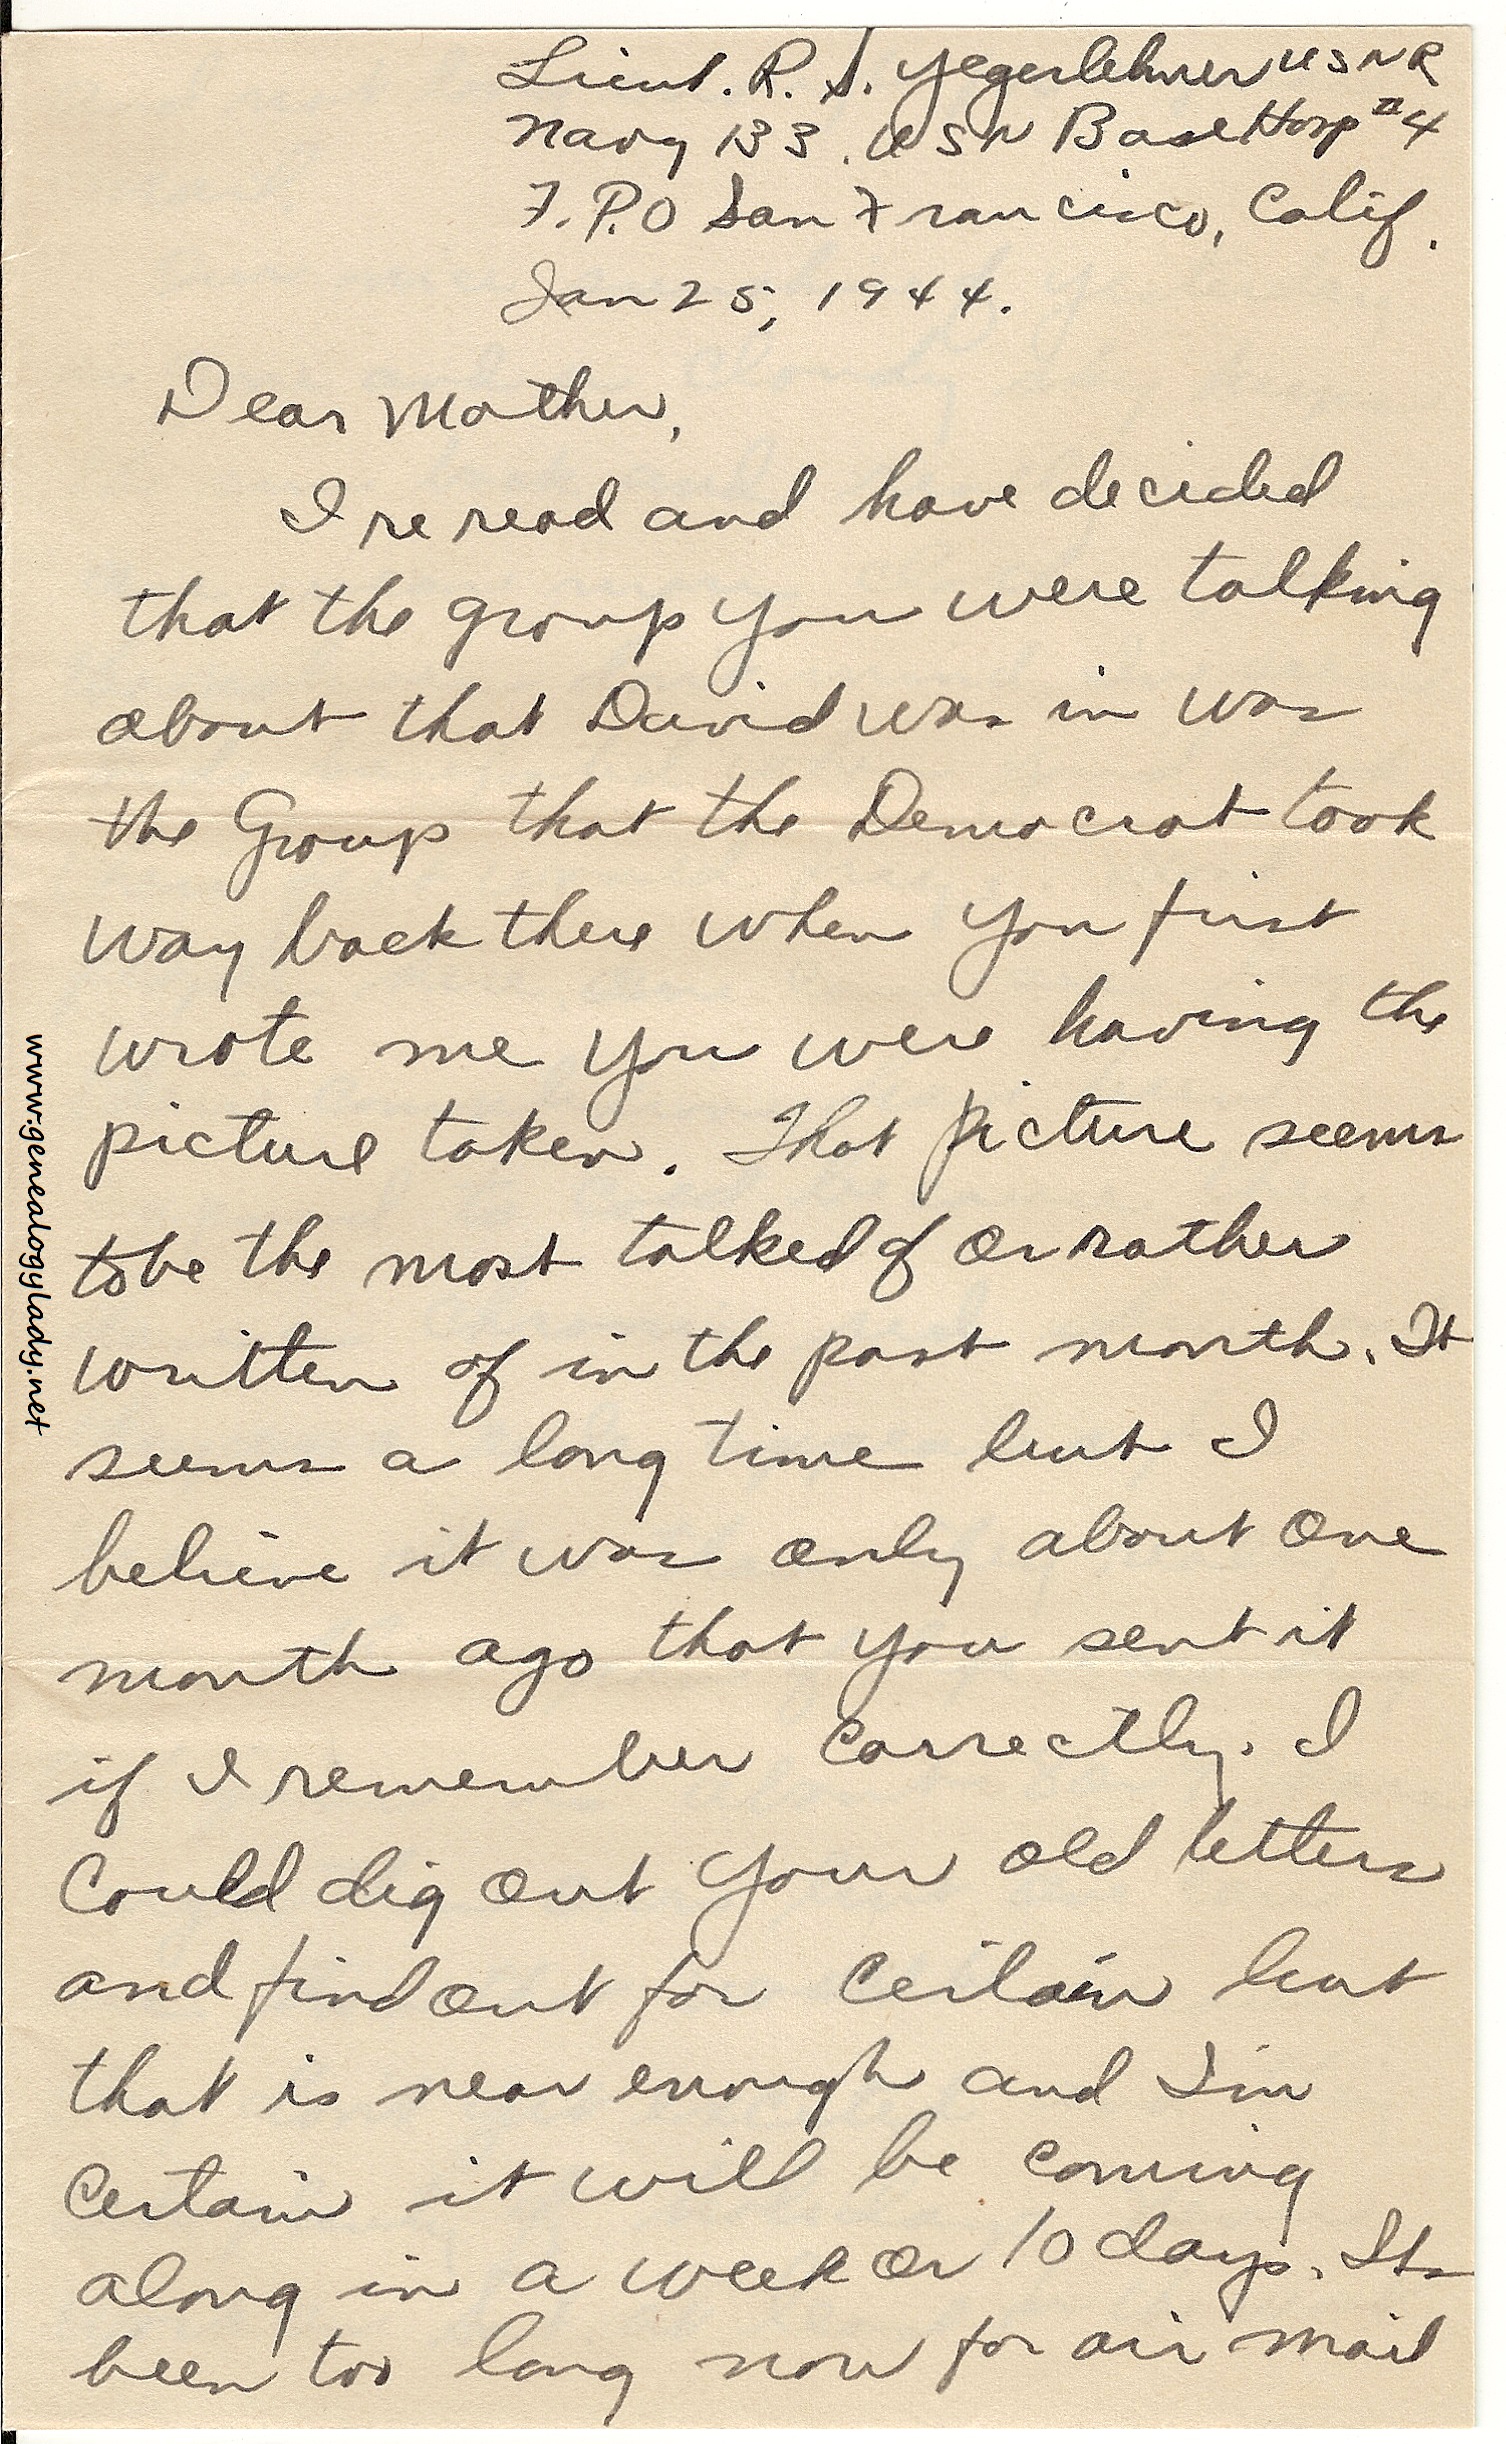 Lieut. R. S. Yegerlehner USNR
Navy 133, USN Base Hosp #4
F.P.O San Francisco, Calif.
Jan 25, 1944.
Dear Mother,
I re read and have decided
that the group you were talking
about that David was in was
the Group that the Democrat took
way back there when you first
wrote me you were having the
picture taken. That picture seems
to be the most talked of or rather
written of in the past month. It
seems a long time but I
believe it was only about one
month ago that you sent it
if I remember correctly. I
Could dig out your old letters
and find out for certain but
that is near enough and I'm
Certain it will be coming
along in a week or 10 days. Its
been too long now for air mail
www.genealogylady.net